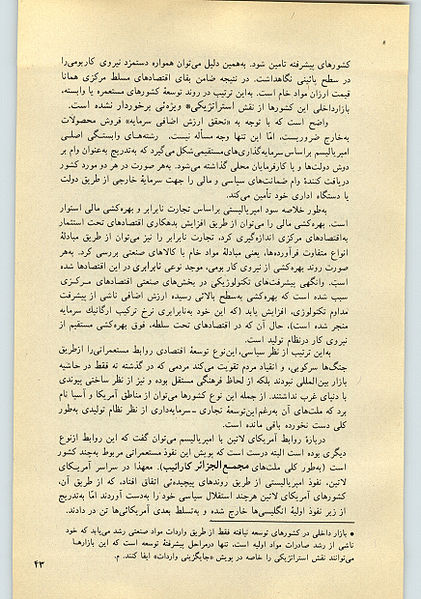 کشورهای پیشرفته تامین شود. به‌همین دلیل می‌توان همواره دستمزد نیروی کار بومی‌را
در سطح پائینی نگاهداشت. در نتیجه ضامن بقای اقتصادهای مسلط مرکزی همانا
قیمت ارزان مواد خام است. به‌این ترتیب در روند توسعهٔ کشورهای مستعمره یا وابسته،
بازارداخلی این کشورها از نقش استراتژیکی* ویژه‌ئی برخوردار نشده است.
واضح است که با توجه به «تحقق ارزش اضافی سرمایه» فروش محصولات
به‌خارج ضروریست، امّا این تنها وجه مسأله نیست. رشته‌های وابستگی اصلی
امپریالیسم براساس سرمایه‌گذاری‌های مستقیمی‌شکل می‌گیرد که به‌تدریج به‌عنوان وام بر
دوش دولت‌ها و یا کارفرمایان محلی گذاشته می‌شود. به‌هر صورت در هر دو مورد کشور
دریافت کنندهٔ وام ضمانت‌های سیاسی و مالی را جهت سرمایهٔ خارجی از طریق دولت
یا دستگاه اداری خود تأمین می‌کند.
به‌طور خلاصه سود امپریالیستی براساس تجارت نابرابر و بهره‌کشی مالی استوار
است. بهره‌کشی مالی را می‌توان از طریق افزایش بدهکاری اقتصادهای تحت استثمار
به‌اقتصادهای مرکزی اندازه‌گیری کرد، تجارت نابرابر را نیز می‌توان از طریق مبادلهٔ
انواع متفاوت فرآورده‌ها، یعنی مبادلهٔ مواد خام با کالاهای صنعتی بررسی کرد. به‌هر
صورت روند بهره‌کشی از نیروی کار بومی، موجد نوعی نابرابری در این اقتصادها شده
است. وانگهی پیشرفت‌های تکنولوژیکی در بخش‌های صنعتی اقتصادهای مرکزی
سبب شده است که بهره‌کشی به‌سطح بالائی رسیده ارزش اضافی ناشی از پیشرفت
مداوم تکنولوژی، افزایش یابد (که این خود به‌نابرابری نرخ ترکیب ارگانیک سرمایه
منجر شده است)، حال آن که در اقتصادهای تحت سلطه، فوق بهره‌کشی مستقیم از
نیروی کار درنظام تولید است.
به‌این ترتیب از نظر سیاسی، این‌نوع توسعهٔ اقتصادی روابط مستعمراتی‌را ازطریق
جنگ‌ها سرکوبی، و انقیاد مردم تقویت می‌کند مردمی که در گذشته نه فقط در حاشیه
بازار بین‌المللی نبودند بلکه از لحاظ فرهنگی مستقل بوده و نیز از نظر ساختی پیوندی
با دنیای غرب نداشتند. از جمله این نوع کشورها می‌توان از مناطق آمریکا و آسیا نام
برد که ملت‌های آن به‌رغم‌این‌توسعهٔ تجاری ـ سرمایه‌داری از نظر نظام تولیدی به‌طور
کلی دست نخورده باقی مانده است.
دربارهٔ روابط آمریکای لاتین با امپریالیسم می‌توان گفت که این روابط ازنوع
دیگری بوده است البته درست است که پویش این نفوذ مستعمراتی مربوط به‌چند کشور
است (به‌طور کلی ملت‌های مجمع‌الجزائر کارائیب). معهذا در سراسر آمریکای
لاتین، نفوذ امپریالیستی از طریق روندهای پیچیده‌ئی اتفاق افتاد، که از طریق آن،
کشورهای آمریکای لاتین هرچند استقلال سیاسی خود را به‌دست آوردند امّا به‌تدریج
از زیر نفوذ اولیهٔ انگلیسی‌ها خارج شده و به‌تسلط بعدی آمریکائی‌ها تن در دادند.
* بازار داخلی در کشورهای توسعه نیافته فقط از طریق واردات مواد صنعتی رشد می‌یابد که خود
ناشی از رشد صادرات مواد اولیه است. تنها درمراحل پیشرفتهٔ توسعه است که این بازارها
می‌توانند نقش استراتژیکی را خاصه در پویش «جایگزینی واردات» ایفا کنند. م.
۴۳